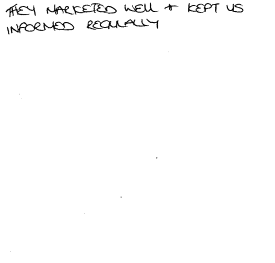 THEY MARKETED WELL + KEPT US
INFORMED REGULALLY